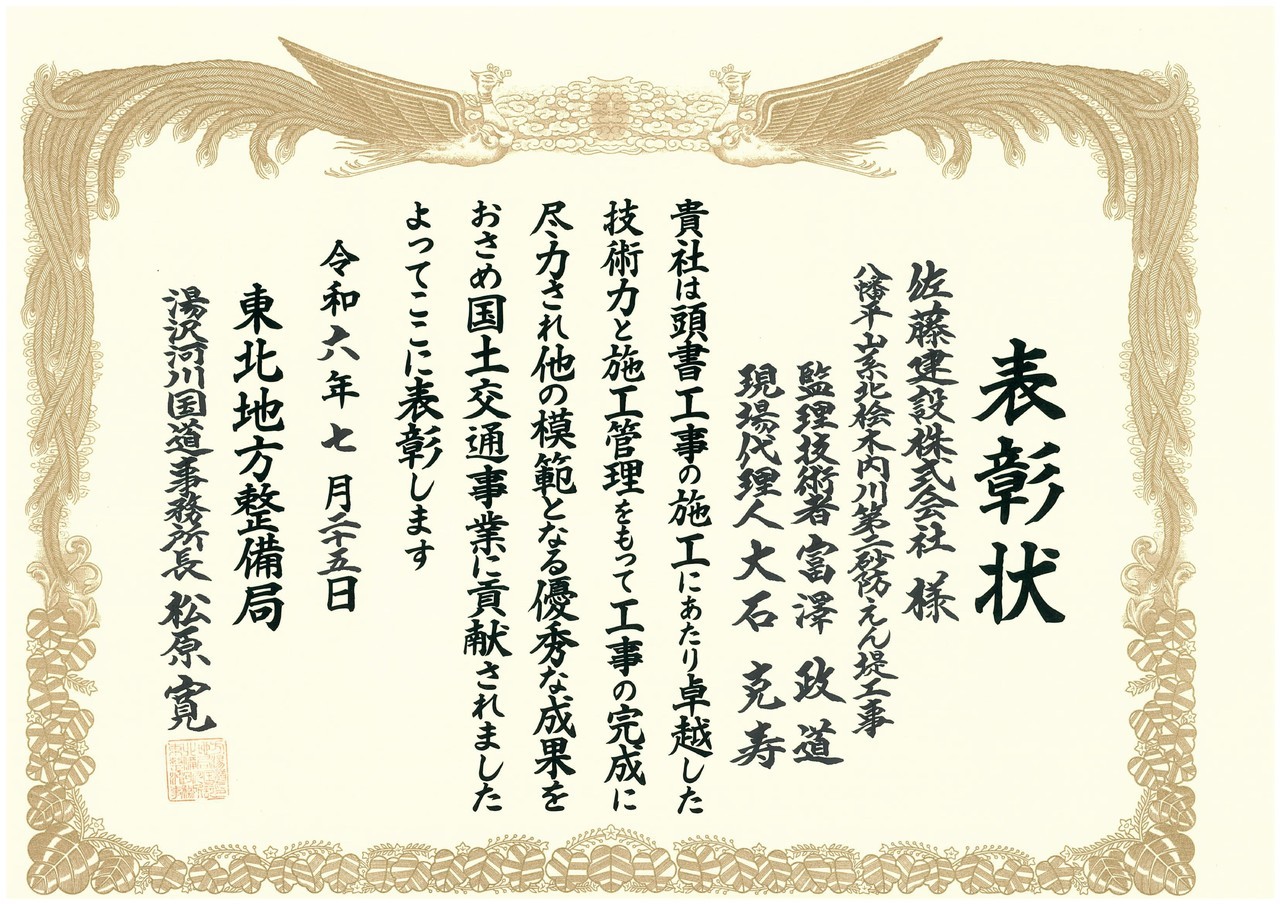 表彰状
佐藤建設株式会社 様
八幡平山系北桧木内川第二砂防えん堤工事
監理技術者 富澤 政道
現場代理人 大石 克寿
貴社は頭書工事の施工にあたり卓越した
技術力と施工管理をもって工事の完成に
尽力され他の模範となる優秀な成果を
おさめ国土交通事業に貢献されました
よってここに表彰します
令和六年七月二十五日
東北地方整備局
湯沢河川国道事務所長 松原 寛